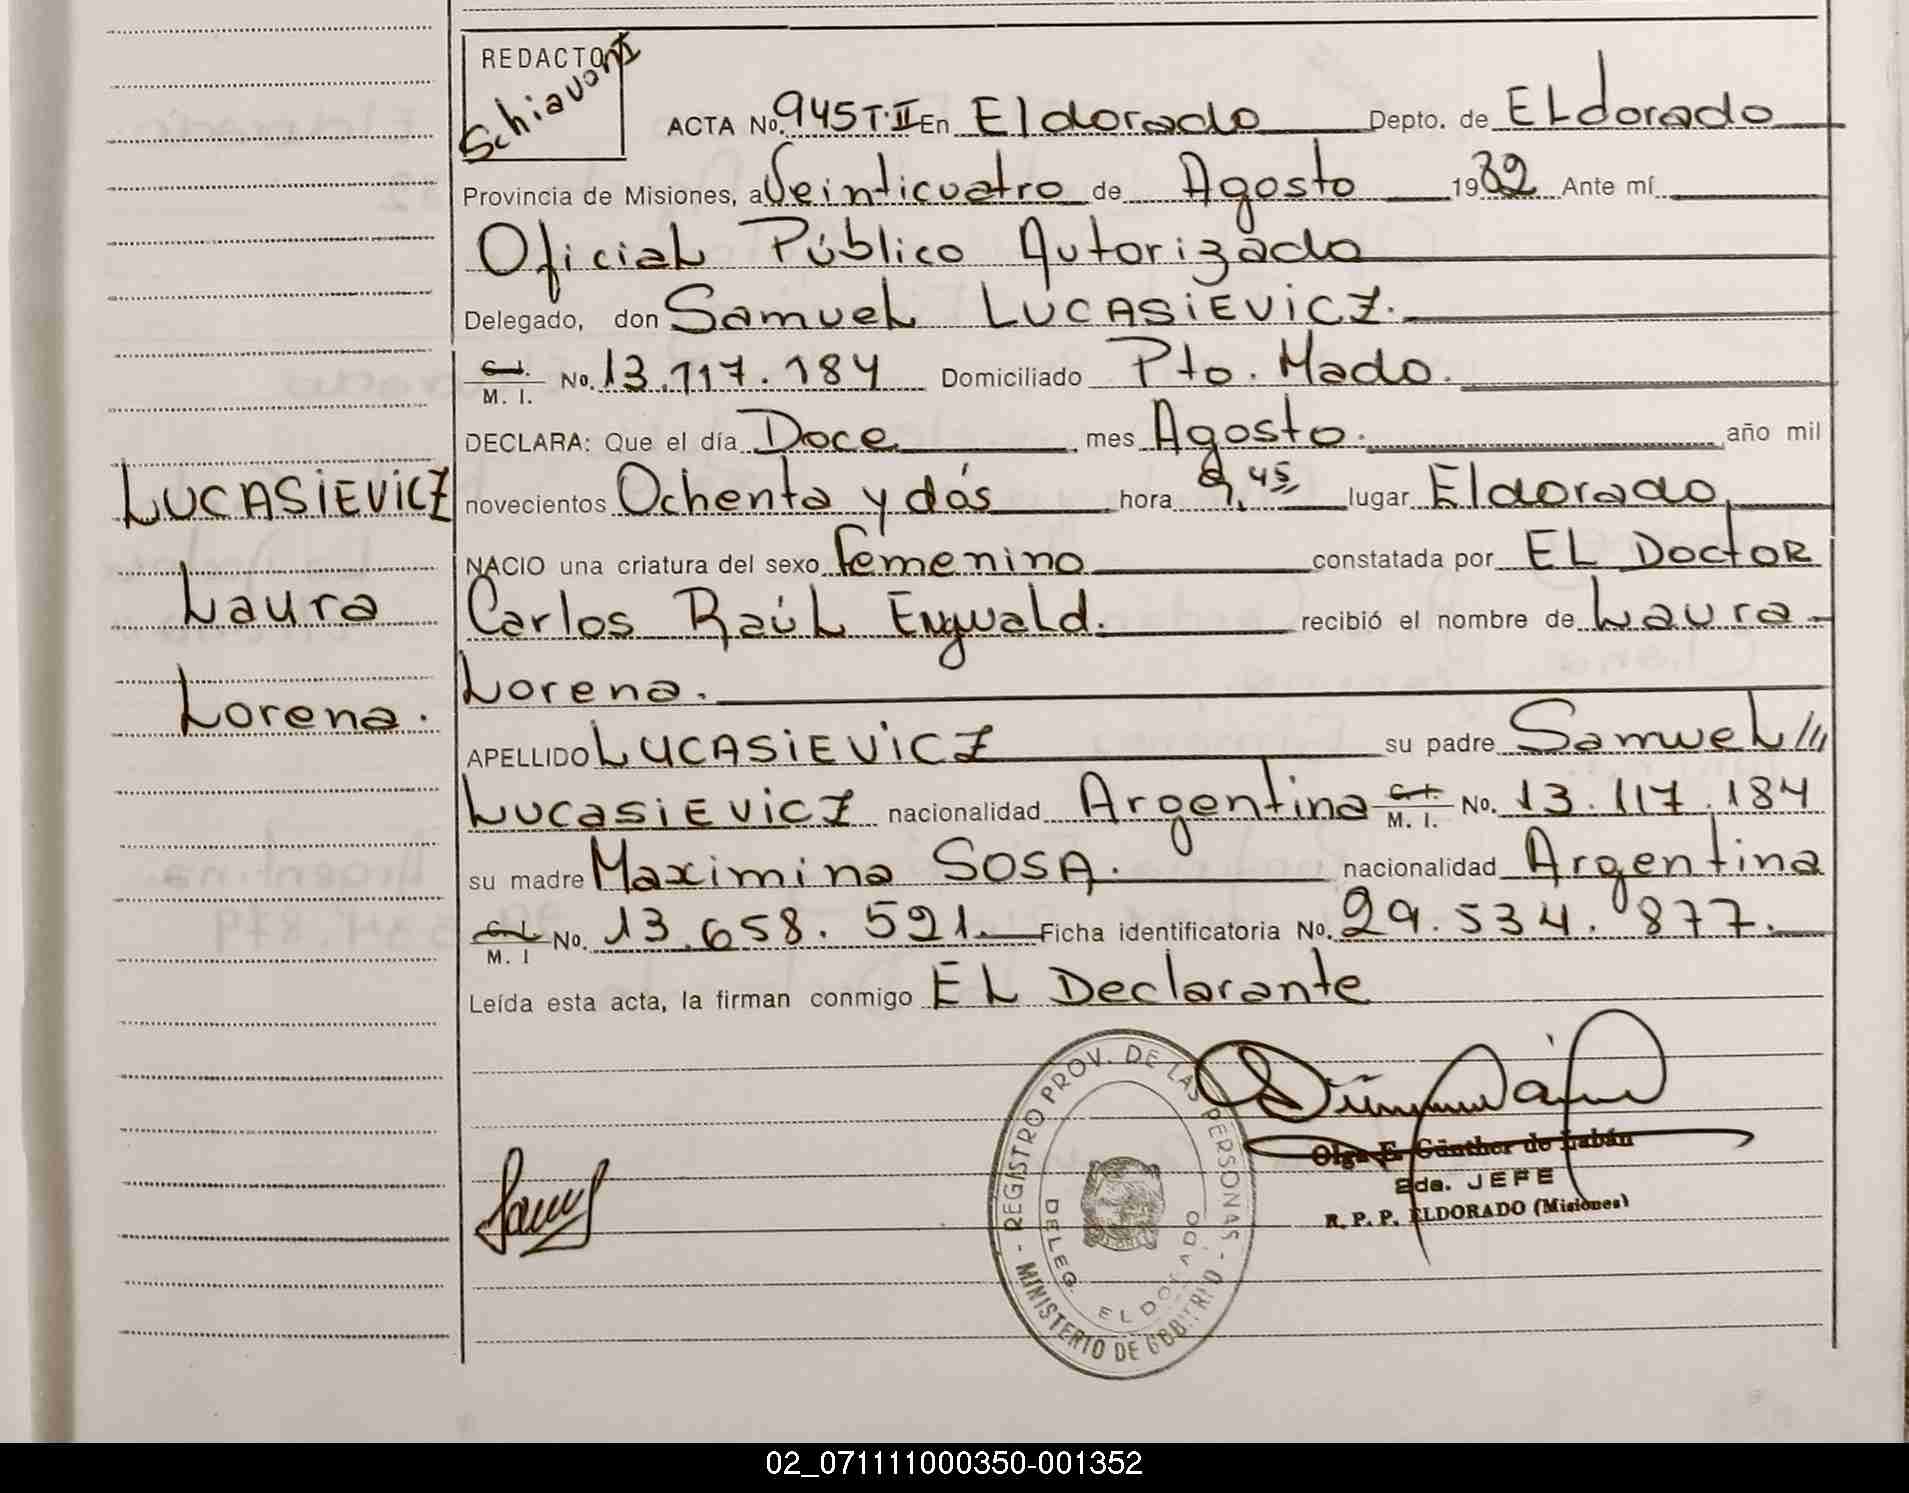 REDACTOR
Schiavoni
ACTA No. 945 T. II En Eldorado Depto. de ELdorado
Provincia de Misiones, a Veinticuatro de Agosto 1982 Ante mí
Oficial Público Autorizado
Delegado, don Samuel LUCASiEVICZ.
C. I. M. I. No. 13.117.184 Domiciliado Pto. Mado.
DECLARA: Que el día Doce mes Agosto. año mil
LUCASiEVICZ novecientos Ochenta y dós hora 9,45 lugar Eldorado,
NACIO una criatura del sexo femenino constatada por EL DoctoR
Laura Carlos Raúl Engwald. recibió el nombre de Laura
Lorena. Lorena.
APELLIDO LUCASiEVICZ su padre Samuel
LucasiEvicZ nacionalidad Argentina C. I. M. I. No. 13.117.184
su madre Maximina SOSA. nacionalidad Argentina
C. I. M. I No. 13.658.521. Ficha identificatoria No. 29.534.877.
Leída esta acta, la firman conmigo EL Declarante
REGISTRO PROV. DE LAS PERSONAS - MINISTERIO DE GOBIERNO -
DELEG. ELDORADO
Olga E. Günther de Labán
2da. JEFE
R. P. P. ELDORADO (Misiones)
02_071111000350-001352